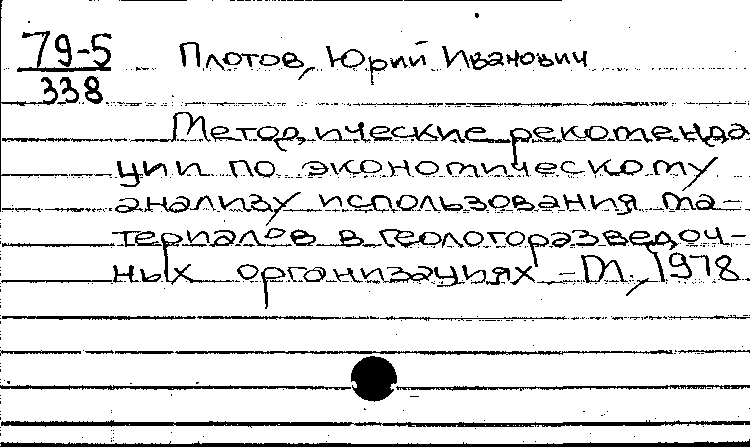 79-5 Плотов, Юрий Иванович
338
Методические рекоменда
ции по экономическому
анализу использования ма-
териалов в геологоразведоч-
ных организациях -М., 1978